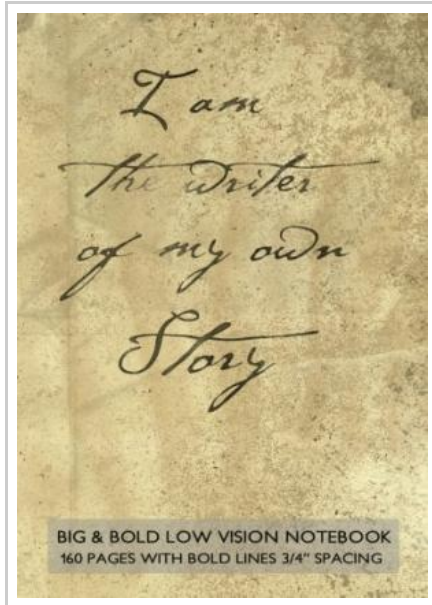 I am
the writer
of my own
Story
BIG & BOLD LOW VISION NOTEBOOK
160 PAGES WITH BOLD LINES 3/4" SPACING